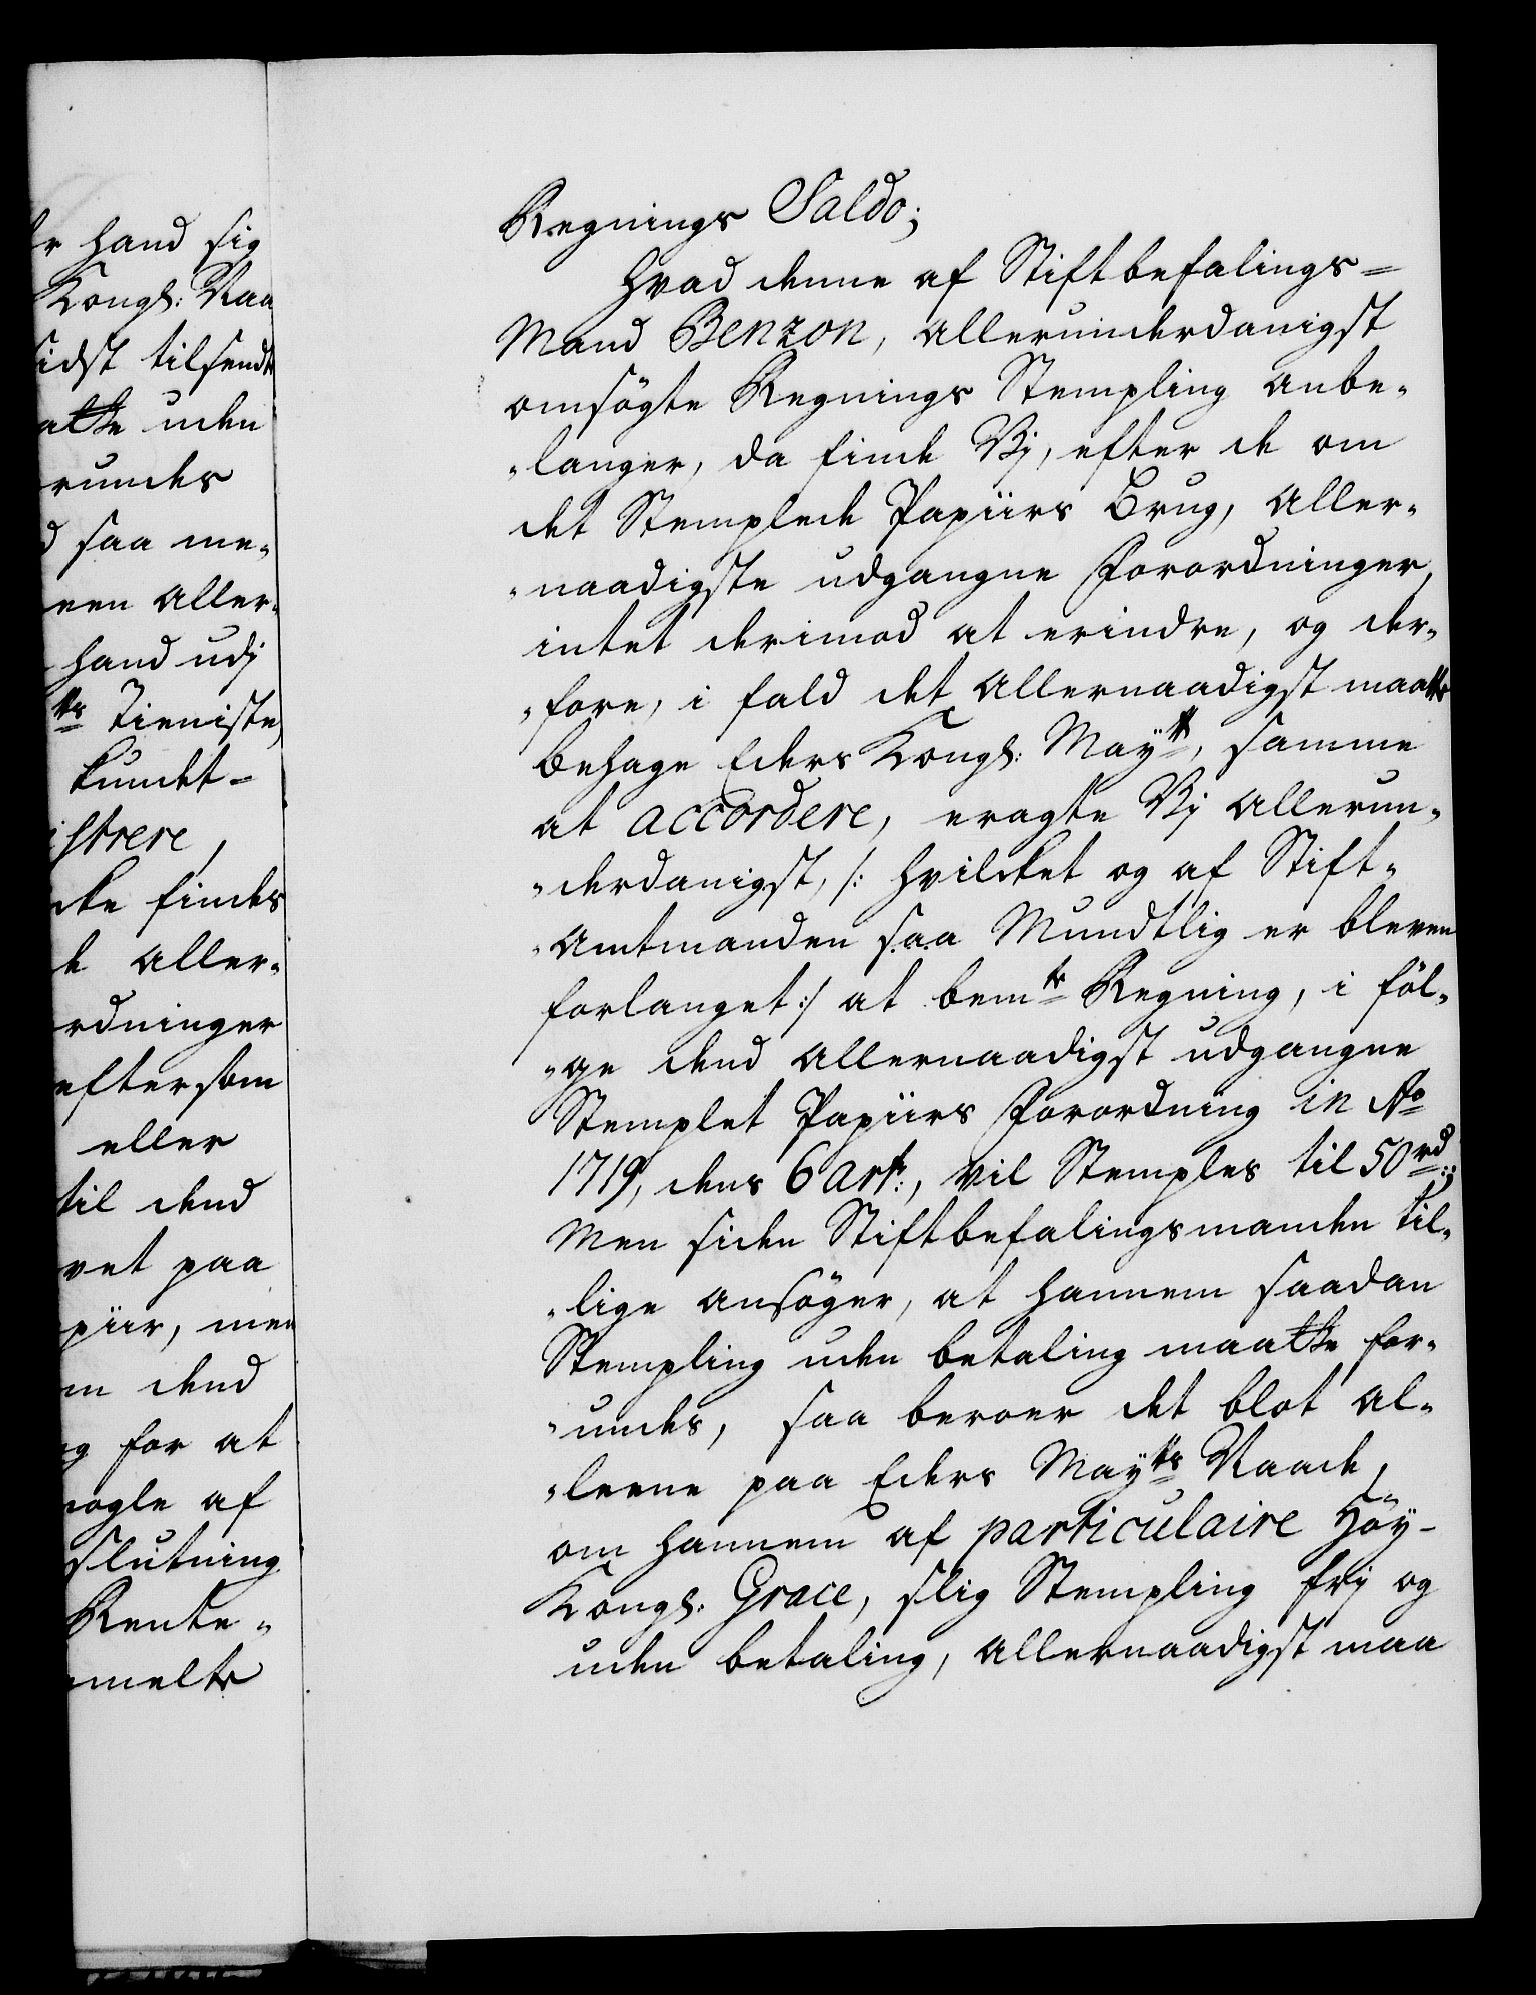 r hand sig
Kongl: Naa
sidst tilsendt
atte uden
rundes
d saa me-
een aller-
hand udj
tts Tieniste,
kundet-
istrere,
cke findes
de aller-
rdninger
eftersom
eller
til dend
vet paa
piir, men
m dend
og for at
nogle af
slutning
Rente-
melte
Regnings Saldo;
Hvad denne af Stiftbefalings-
Mand Benzon, allerunderdanigst
omsögte Regnings Stempling anbe-
langer, da finde Vj, efter de om
det Stemplede Papiirs Brug, aller-
naadigste udgangne Forordninger,
intet derimod at erindre, og der-
fore, i fald det allernaadigst maatte
behage Eders Kongl: Maytt, samme
at accordere, eragte Vj allerun-
derdanigst, /: hvilcket og af Stift-
amtmanden saa Mundtlig er bleven
forlanget :/ at bemte Regning, i föl-
ge dend allernaadigst udgangne
Stemplet Papiirs Forordning in Ao
1719, dens 6 Art:, vil Stemples til 50 rd:;
Men siden Stiftbefalingsmanden til-
lige ansöger, at hannem saadan
Stempling uden betaling maatte for-
undes, saa beroer det blot al-
leene paa Eders Maytts Naade,
om hannem af particulaire Höy-
Kongl: Grace, slig Stempling frj og
uden betaling, allernaadigst maa